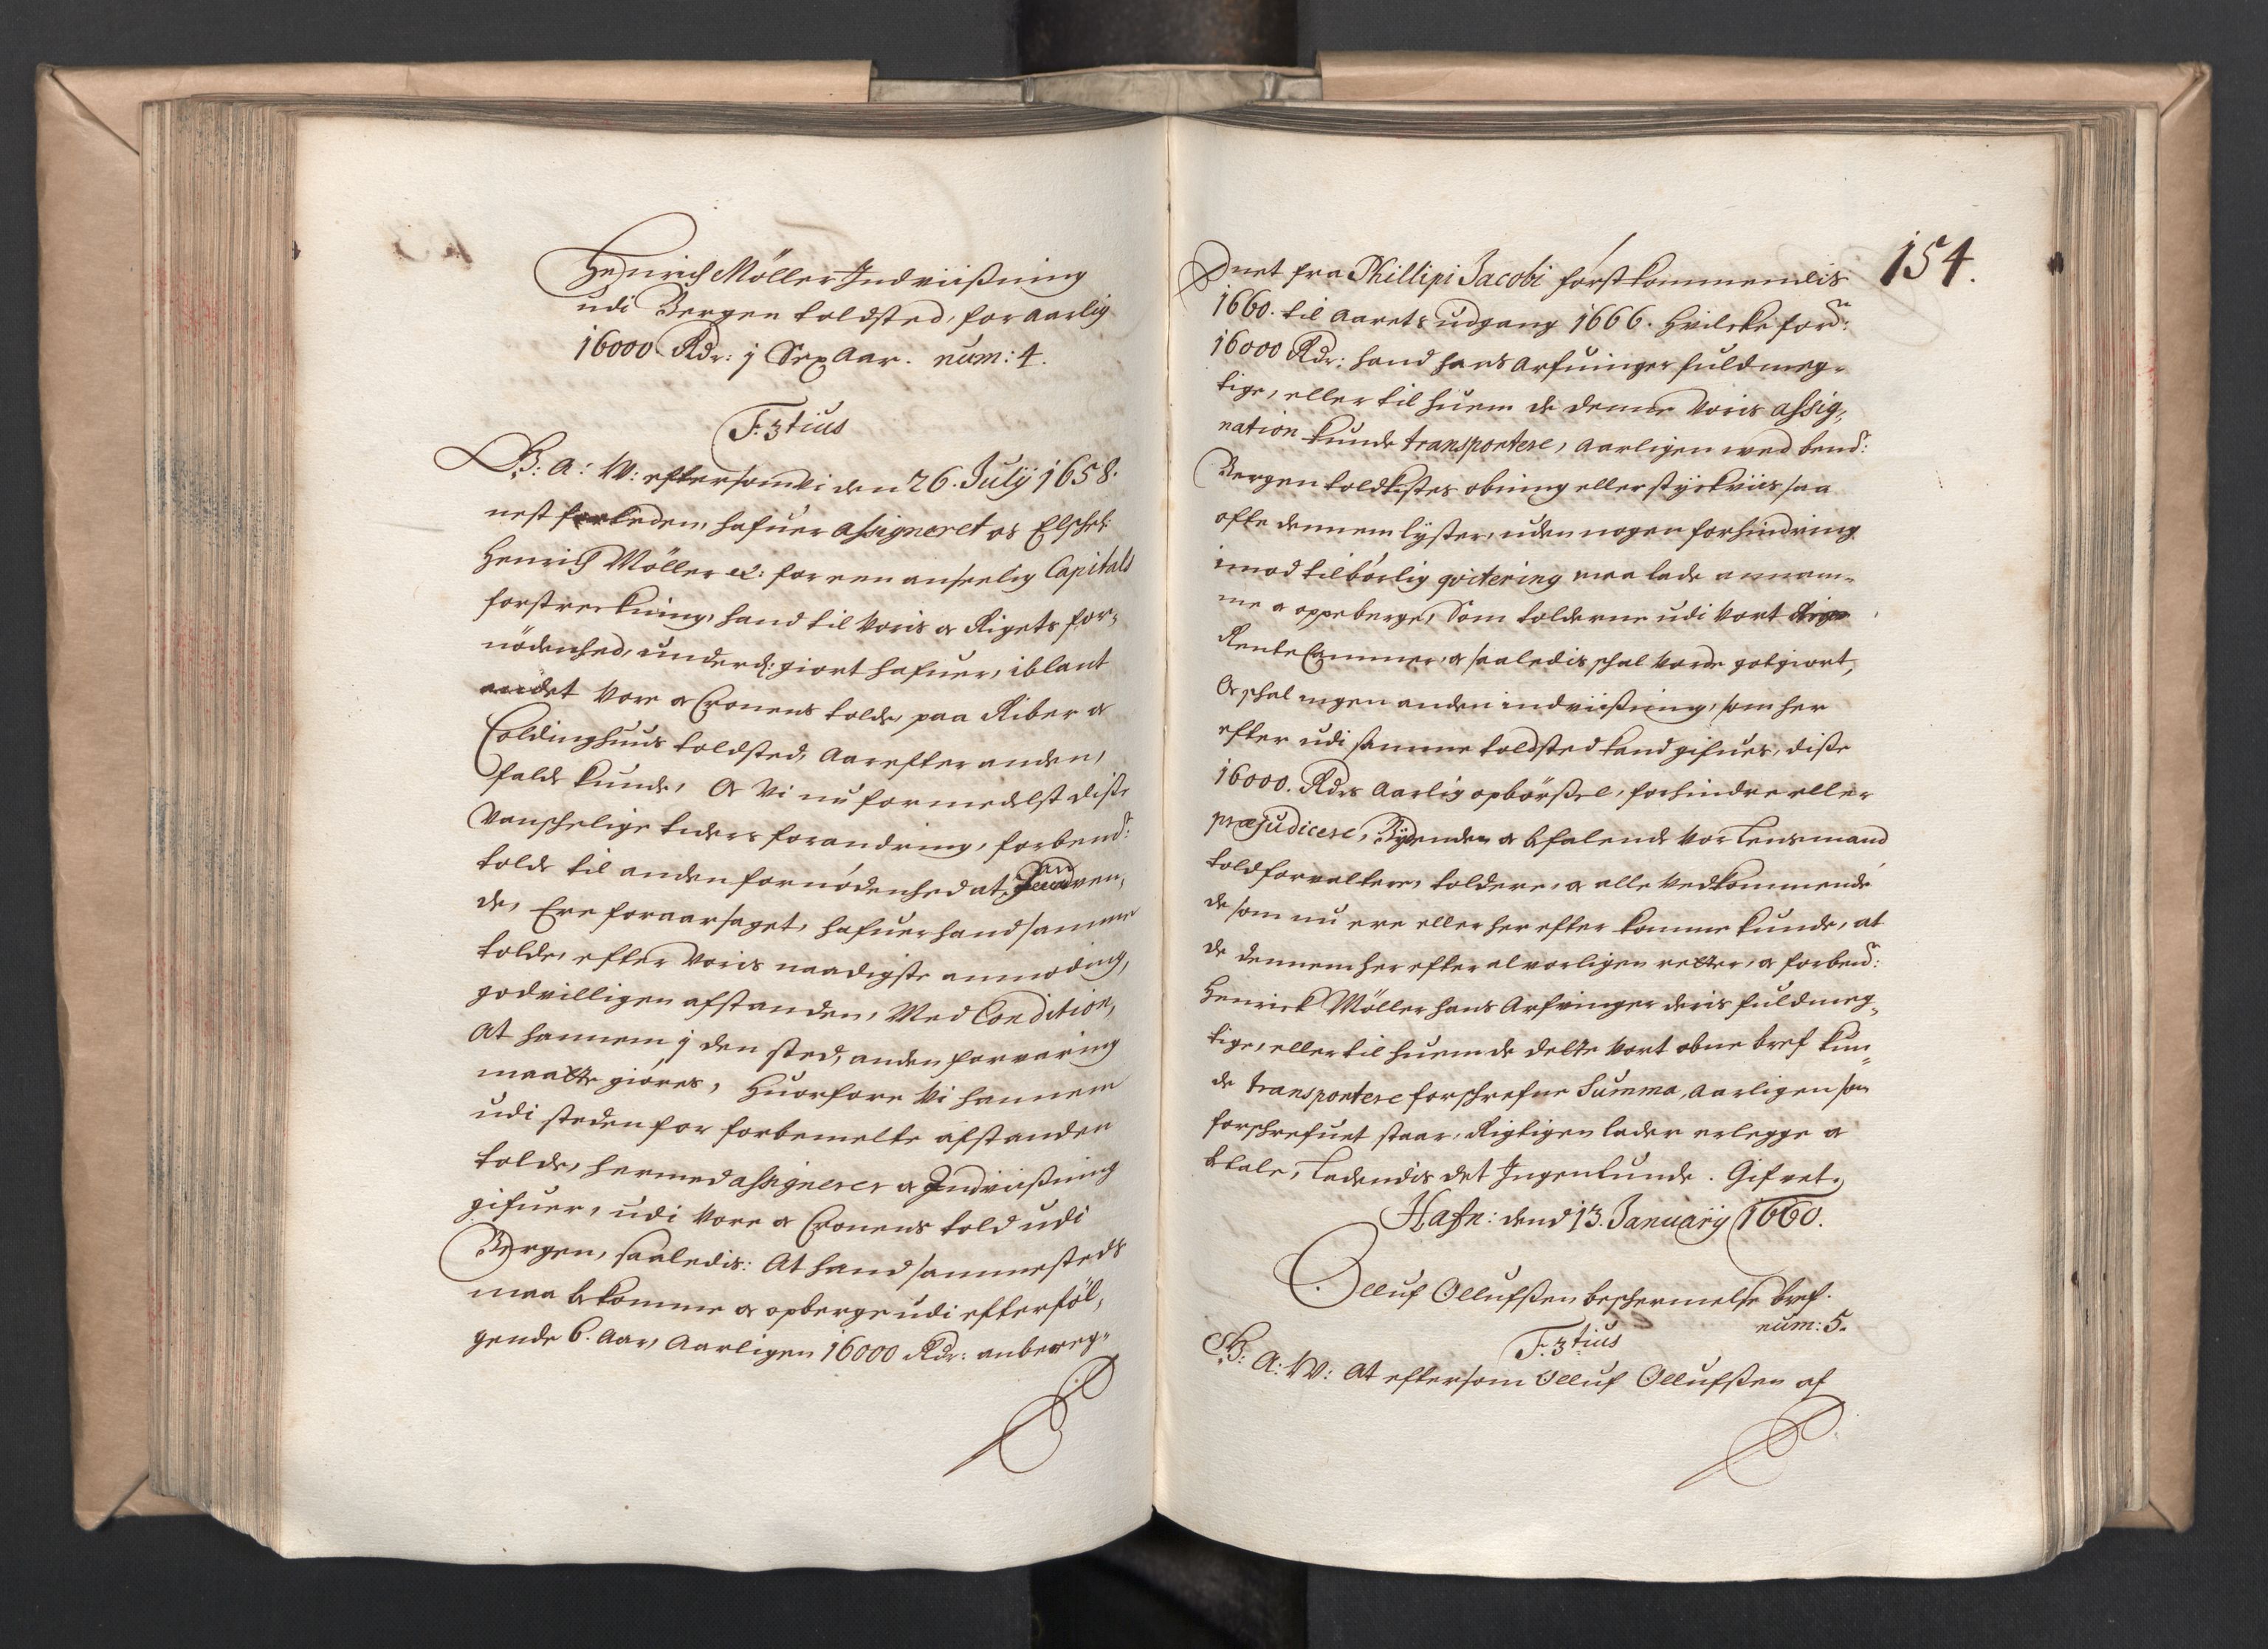 Henrich Möller Indviißning
udi Bergen toldsted, for aarlig
16000 Rdr: j Sex Aar. num: 4.
F. 3tius
G: A: W: eftersom Vi den 26. Julij 1658.
nest forleden, hafuer assigneret os Elschel:
Henrich Möller etc: for een anseelig Capitals
forstreckning, hand til Voris oc Rigets for-
nödenhed, underd: giort hafuer, iblant
andet Vore oc Cronens tolde, paa Riber oc
Coldinghuus toldsted, Aar efter anden,
falde kunde, Oc Vi nu formedelst disse
Vanschelige tiders forandring, forbend:
tolde til anden fornödenhed at anven,
de, Ere foraarsaget, hafuer hand samme
tolde, efter Voris naadigste anmoding,
godvilligen afstanden, Med Condition,
At hannem j den sted, anden forvaring
maatte giöres, Huorfore Vi hannem
udi steden for forbemelte afstanden
tolde, hermed assignerer oc Indviißning
gifuer, udi Vore oc Cronens told udi
Bergen, saaledis: At hand sammesteds
maa bekomme oc opberge udi efterföl,
gende 6. Aar, Aarligen 16000 Rdr: anbereg-
154.
net fra Phillipi Jacobi förstkommendis
1660. til Aarets udgang 1666. Hvilcke ford:
16000 Rdr: hand hans Arfuinger fuldmeg-
tige, eller til huem de denne Voris assig-
nation kunde transportere, Aarligen ved bend:
Bergen toldkistes obning eller styckviis saa
ofte dennem lyster, uden nogen forhindring
imod tilbörlig qvitering maa lade annam-
me oc oppeberge, Som tolderne udi Vort
Rente Cammer, oc saaledis schal Vorde gotgiort,
Oc schal ingen anden indviißning, som her
efter udi samme toldsted kand gifues, disse
16000. Rdrs Aarlig opbörßel, forhindre eller
præjudicere, Bydendes oc befalende Vor Lensmand
toldforvaltere, toldere, oc alle Vedkommende
de som nu ere eller her efter komme kunde, at
de dennem her efter alvorligen retter, oc forbend:
Henrick Möller hans Arfvinger deris fuldmeg-
tige, eller til huem de dette Vort obne bref kun-
de transportere forschrefne Summa, Aarligen som
forschrefuet staar, Rigtigen lader erlegge oc
betale, Ladendis det Ingenlunde. Gifvet.
Hafn: dend 13. Januarij 1660.
Olluf Ollufßen beschermelse bref.
num: 5.
F. 3tius
G: A: W: At eftersom Olluf Ollufßen af